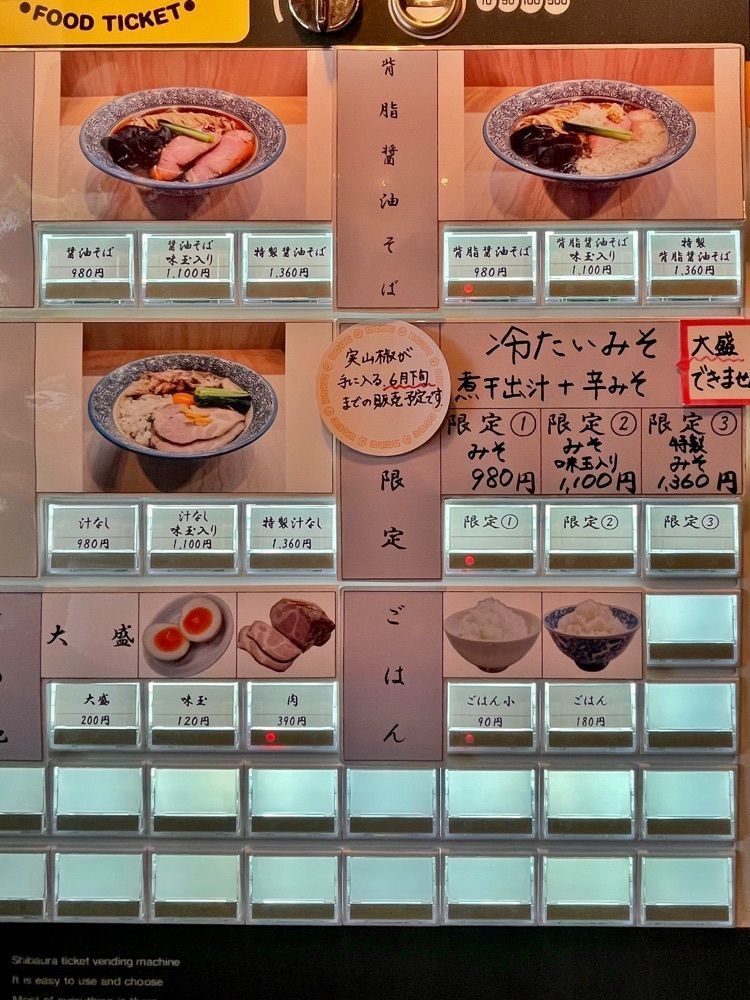 •FOOD TICKET•
10 50 100 500
醤油そば
980円
醤油そば
味玉入り
1,100円
特製醤油そば
1,360円
背脂醤油そば
背脂醤油そば
980円
背脂醤油そば
味玉入り
1,100円
特製
背脂醤油そば
1,360円
汁なし
980円
汁なし
味玉入り
1,100円
特製汁なし
1,360円
実山椒が
手に入る、6月下旬
までの販売予定です。
限定
冷たいみそ
煮干出汁+辛みそ
大盛
できませ
限定①
みそ
980円
限定②
みそ
味玉入り
1,100円
限定③
特製
みそ
1,360円
限定①
限定②
限定③
大盛
大盛
200円
味玉
120円
肉
390円
ごはん
ごはん小
90円
ごはん
180円
Shibaura ticket vending machine
It is easy to use and choose